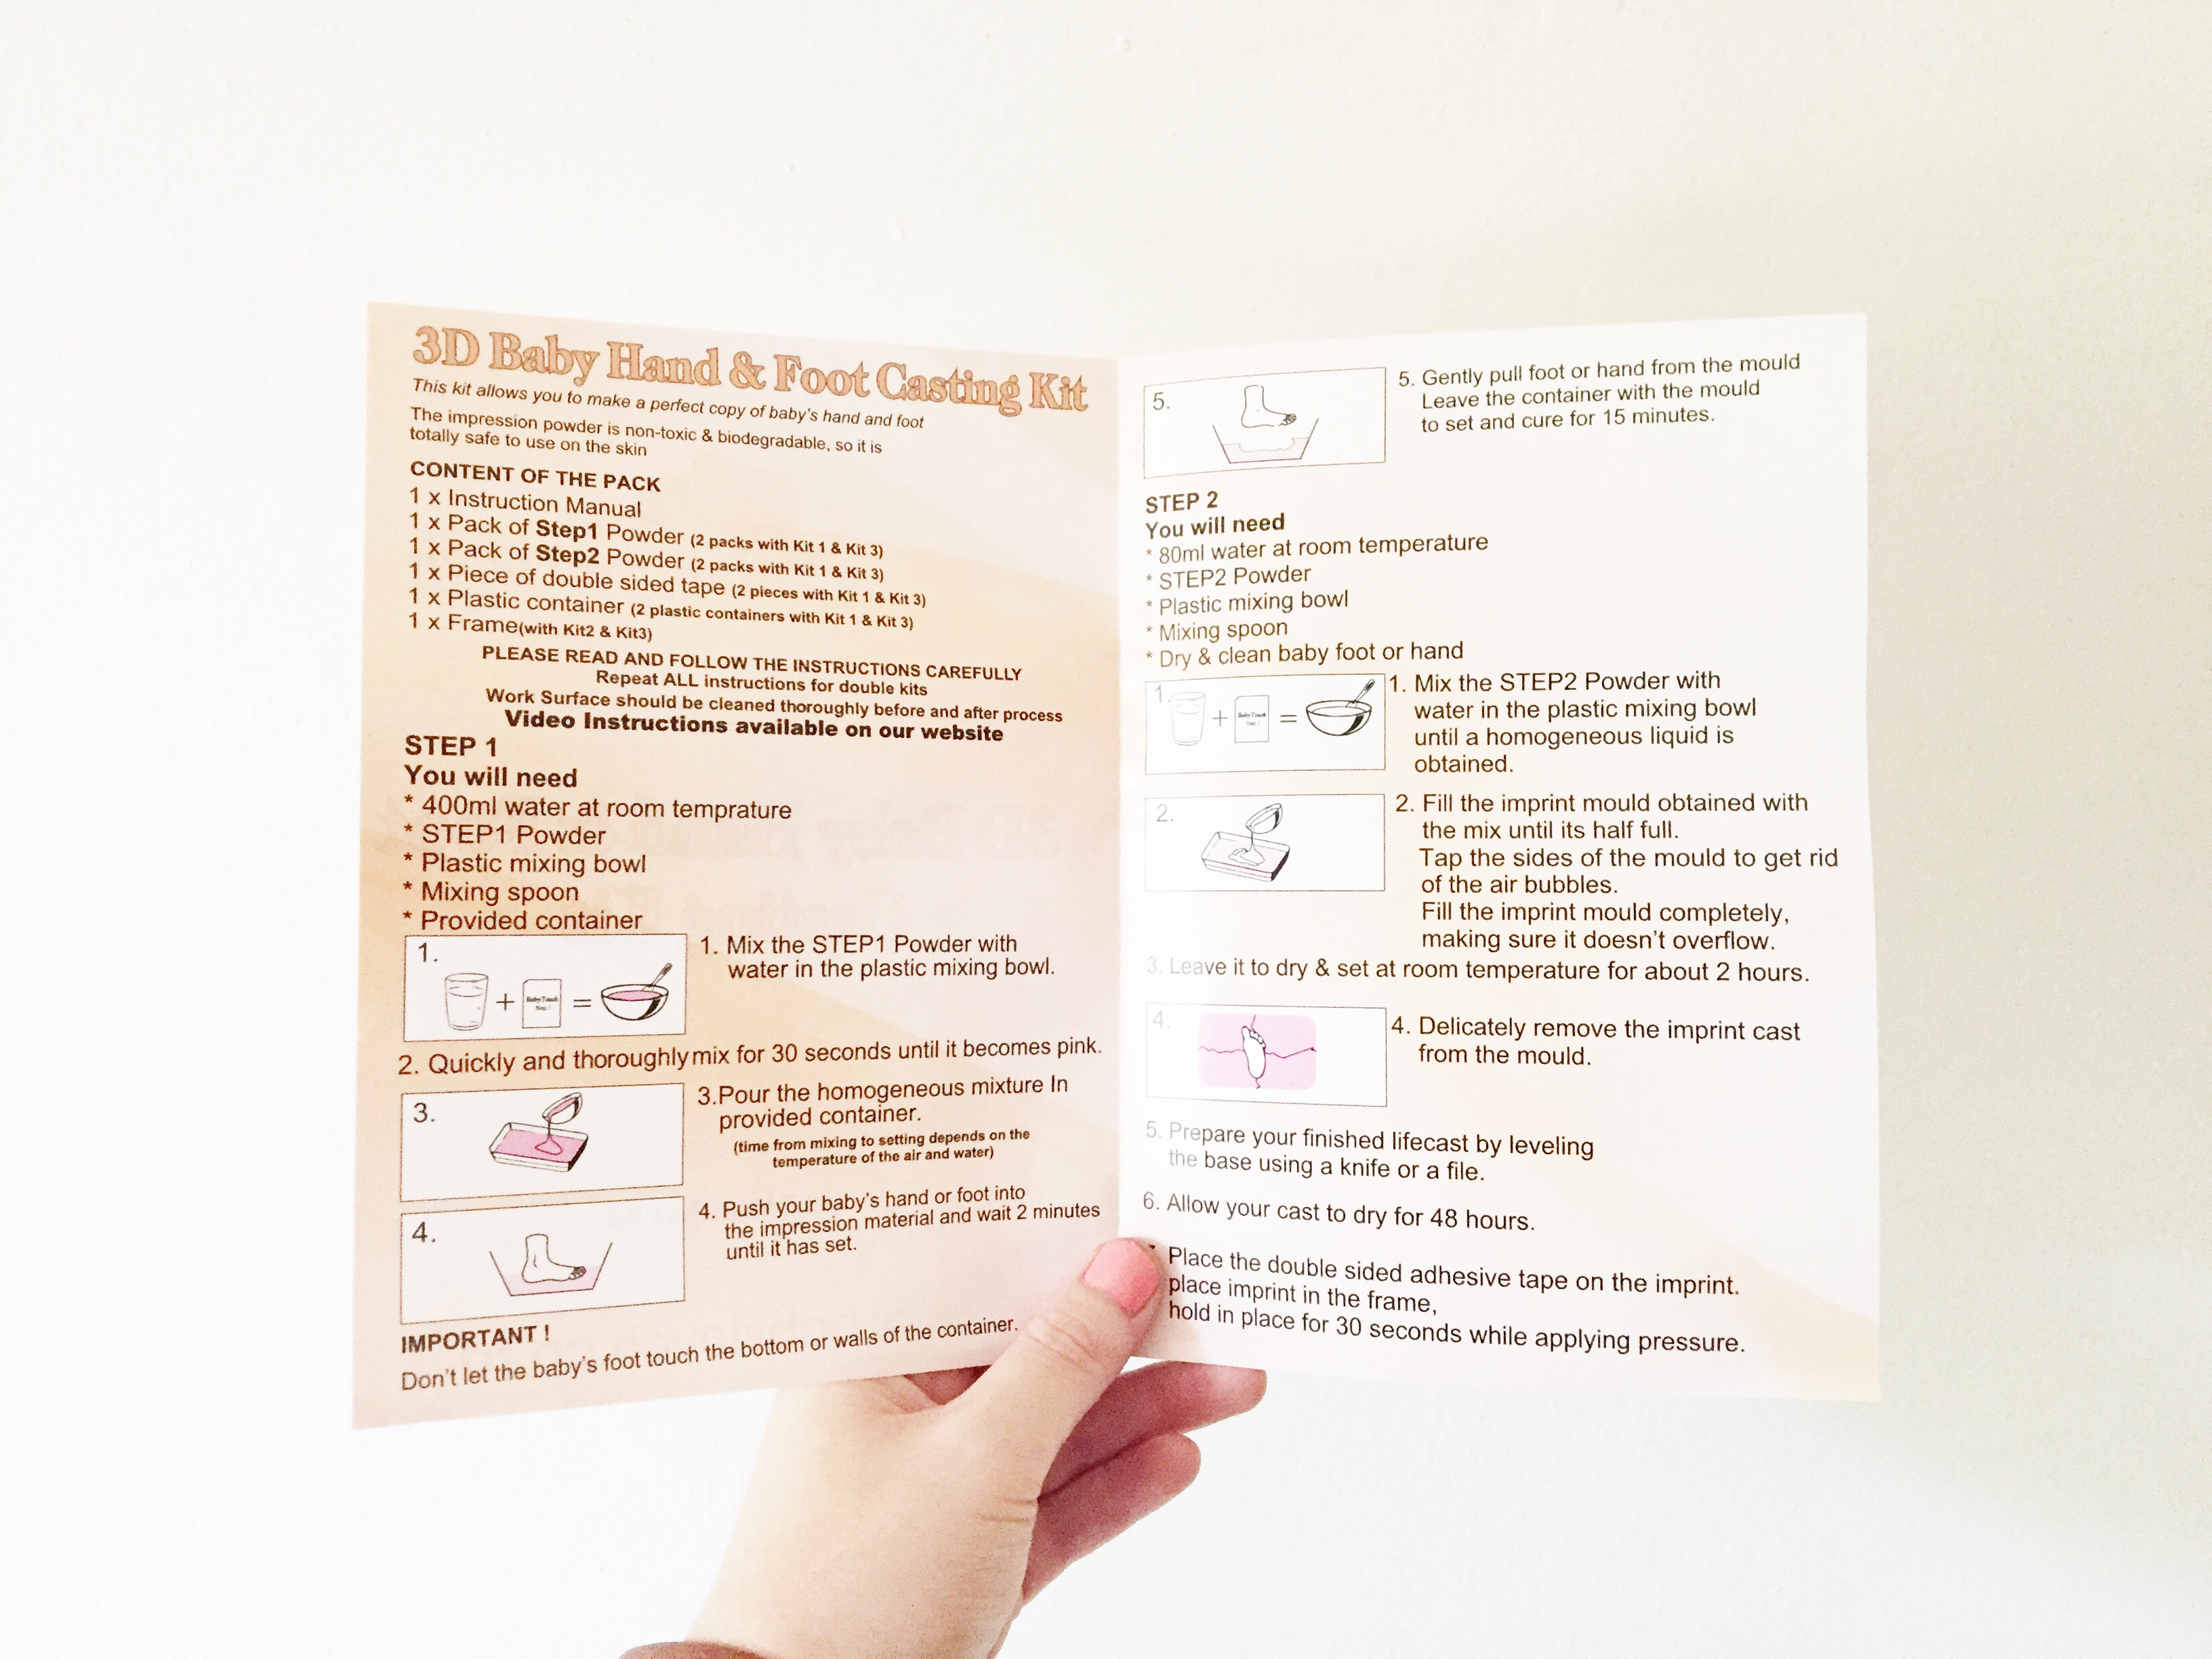 3D Baby Hand & Foot Casting Kit
This kit allows you to make a perfect copy of baby's hand and foot
The impression powder is non-toxic & biodegradable, so it is
totally safe to use on the skin
CONTENT OF THE PACK
1 x Instruction Manual
1 x Pack of Step1 Powder (2 packs with Kit 1 & Kit 3)
1 x Pack of Step2 Powder (2 packs with Kit 1 & Kit 3)
1 x Piece of double sided tape (2 pieces with Kit 1 & Kit 3)
1 x Plastic container (2 plastic containers with Kit 1 & Kit 3)
1 x Frame(with Kit2 & Kit3)
PLEASE READ AND FOLLOW THE INSTRUCTIONS CAREFULLY
Repeat ALL instructions for double kits
Work Surface should be cleaned thoroughly before and after process
Video Instructions available on our website
STEP 1
You will need
* 400ml water at room temprature
* STEP1 Powder
* Plastic mixing bowl
* Mixing spoon
* Provided container
1.
+ Baby Touch =
Step 1
1. Mix the STEP1 Powder with
water in the plastic mixing bowl.
2. Quickly and thoroughly mix for 30 seconds until it becomes pink.
3.
3.Pour the homogeneous mixture In
provided container.
(time from mixing to setting depends on the
temperature of the air and water)
4.
4. Push your baby's hand or foot into
the impression material and wait 2 minutes
until it has set.
IMPORTANT !
Don't let the baby's foot touch the bottom or walls of the container.
5.
5. Gently pull foot or hand from the mould
Leave the container with the mould
to set and cure for 15 minutes.
STEP 2
You will need
* 80ml water at room temperature
* STEP2 Powder
* Plastic mixing bowl
* Mixing spoon
* Dry & clean baby foot or hand
1.
+ Baby Touch =
1. Mix the STEP2 Powder with
water in the plastic mixing bowl
until a homogeneous liquid is
obtained.
2.
2. Fill the imprint mould obtained with
the mix until its half full.
Tap the sides of the mould to get rid
of the air bubbles.
Fill the imprint mould completely,
making sure it doesn't overflow.
3. Leave it to dry & set at room temperature for about 2 hours.
4.
4. Delicately remove the imprint cast
from the mould.
5. Prepare your finished lifecast by leveling
the base using a knife or a file.
6. Allow your cast to dry for 48 hours.
Place the double sided adhesive tape on the imprint.
place imprint in the frame,
hold in place for 30 seconds while applying pressure.